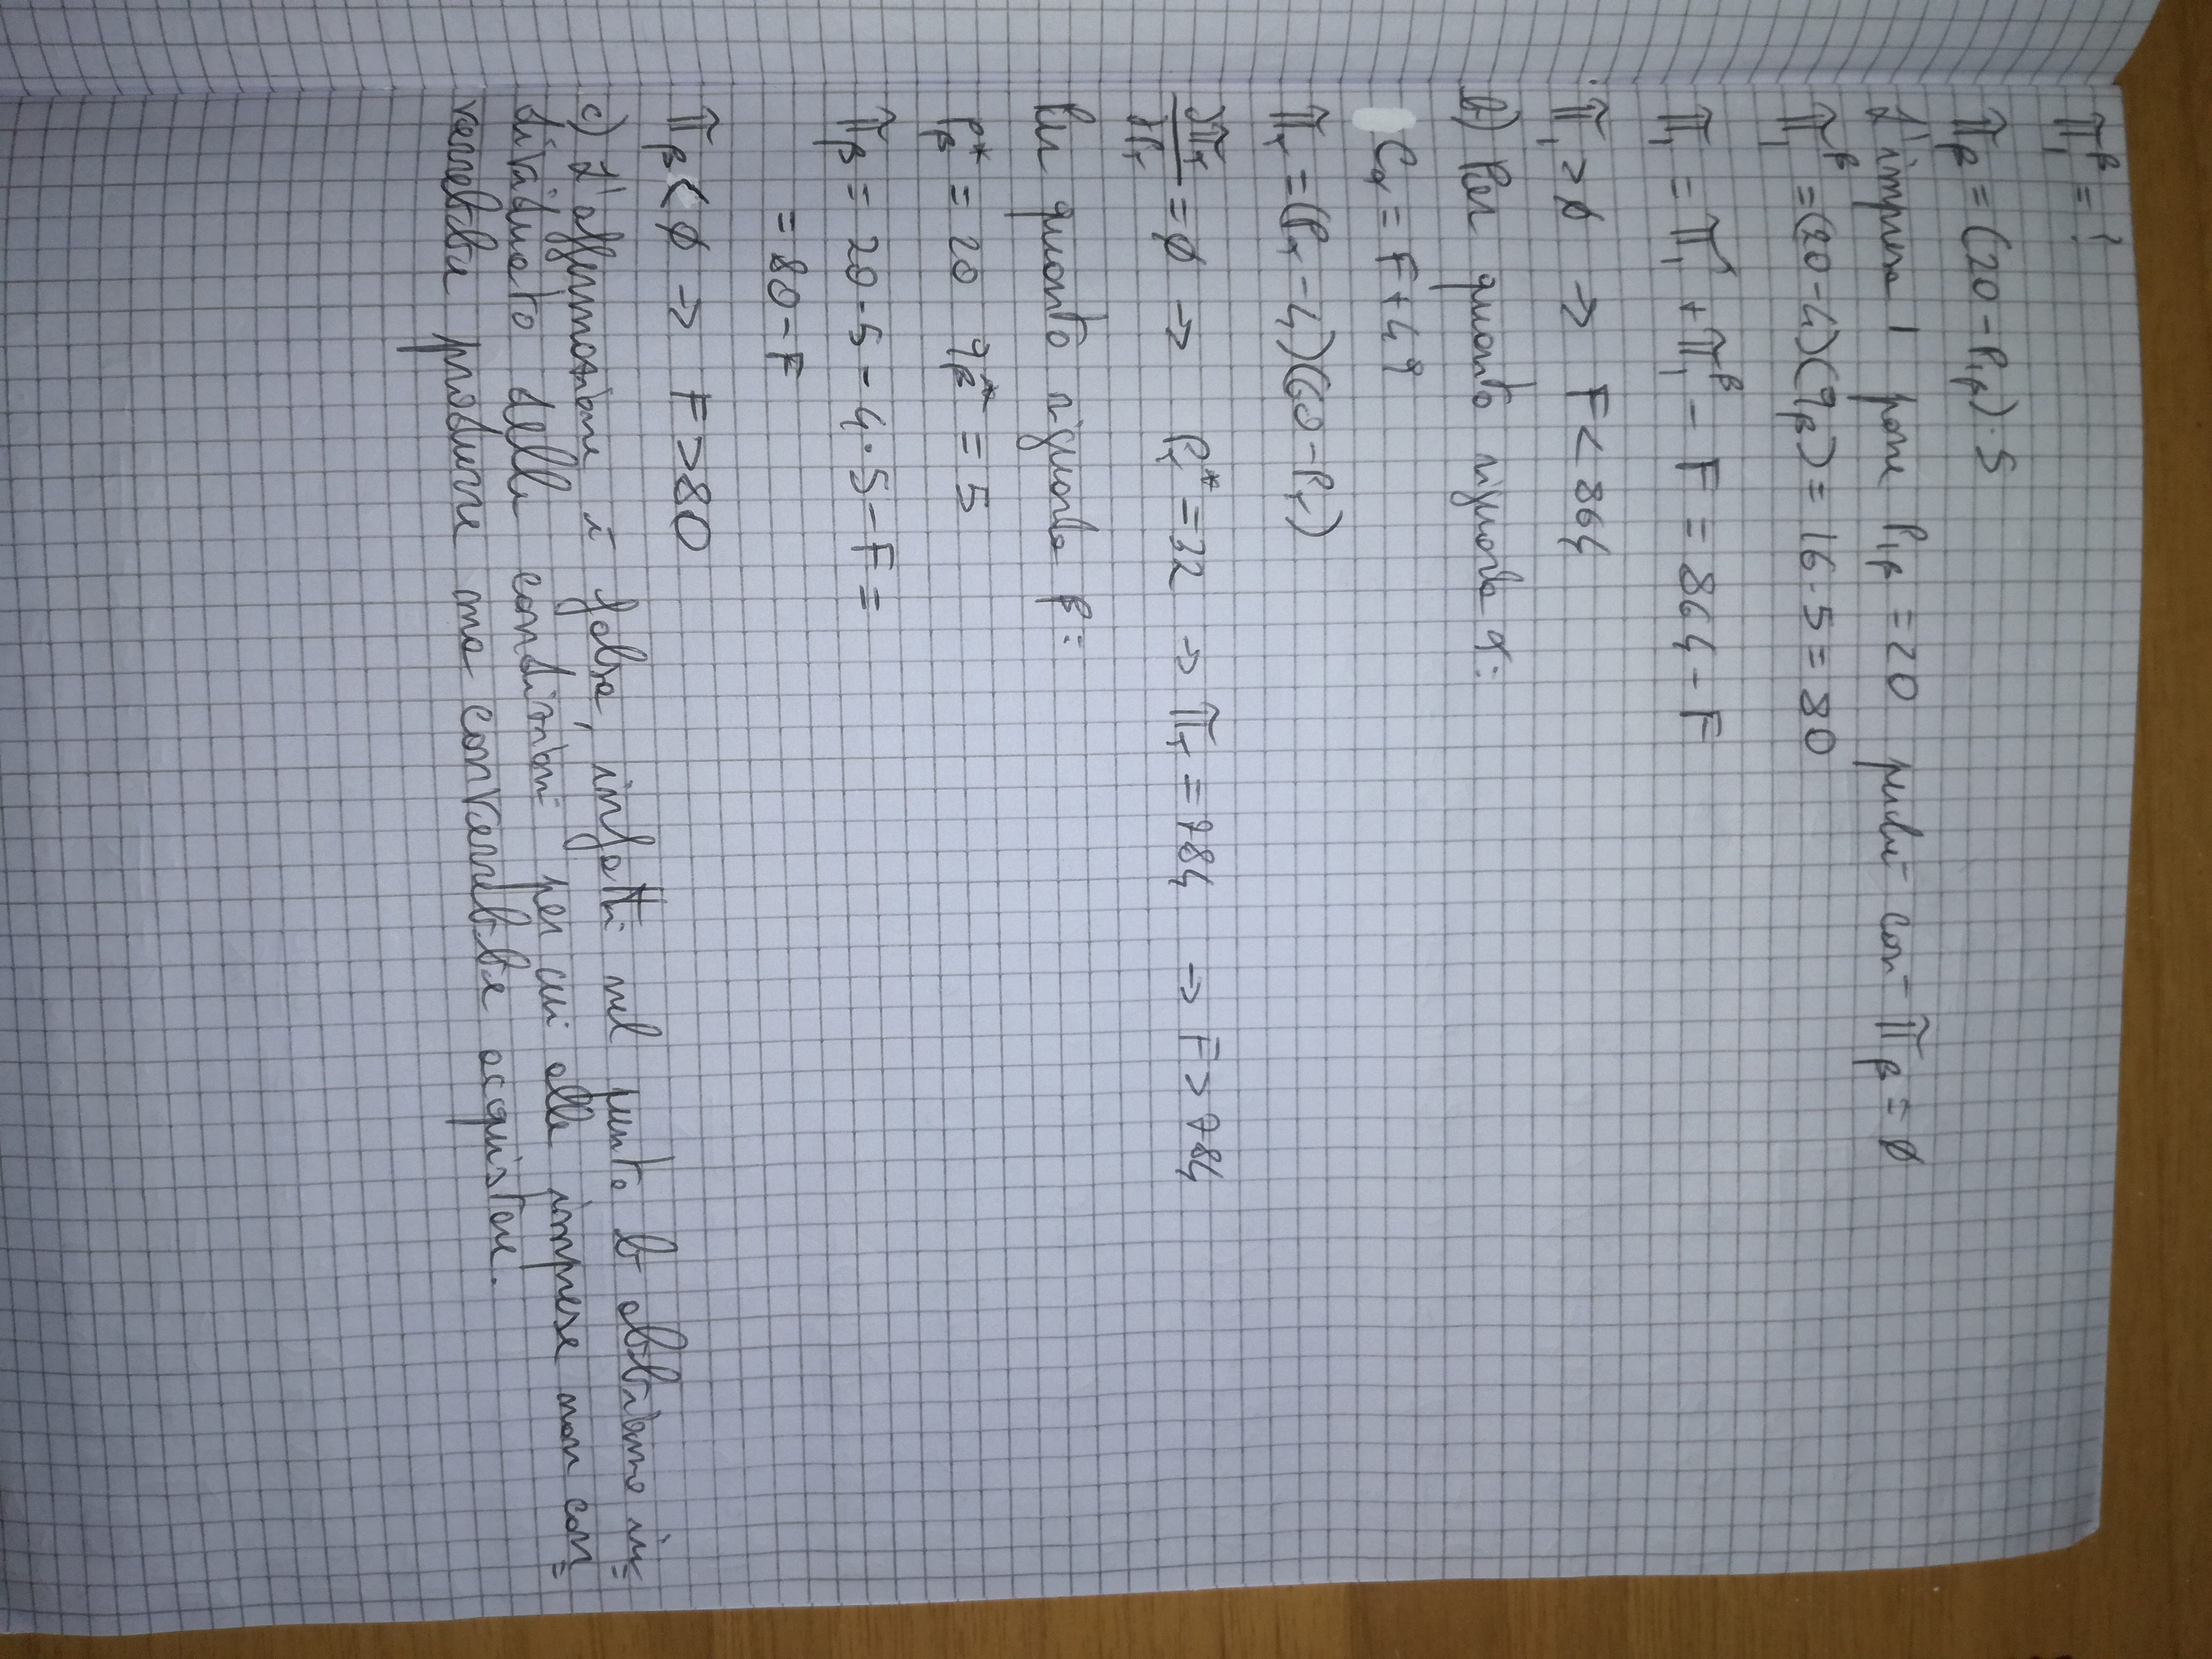 π₁^β = ?
π_β = (20 - P₁β) · 5
L'impresa 1 pone P₁β = 20 perché così π_β = ∅
π₁^β = (20 - 4)(q_β) = 16 · 5 = 80
π₁ = π₁^α + π₁^β - F = 864 - F
π₁ > ∅ → F < 864
b) Per quanto riguarda α:
C_α = F + 4q
π_α = (P_α - 4)(60 - P_α)
∂π_α/∂P_α = ∅ → P_α* = 32 → π_α = 784 → F > 784
Per quanto riguarda β:
P_β* = 20 q_β* = 5
π_β = 20 · 5 - 4 · 5 - F =
= 80 - F
π_β < ∅ → F > 80
c) L'affermazione è falsa, infatti nel punto b abbiamo in=
dividuato delle condizioni per cui alle imprese non con=
verrebbe produrre ma converrebbe acquistare.